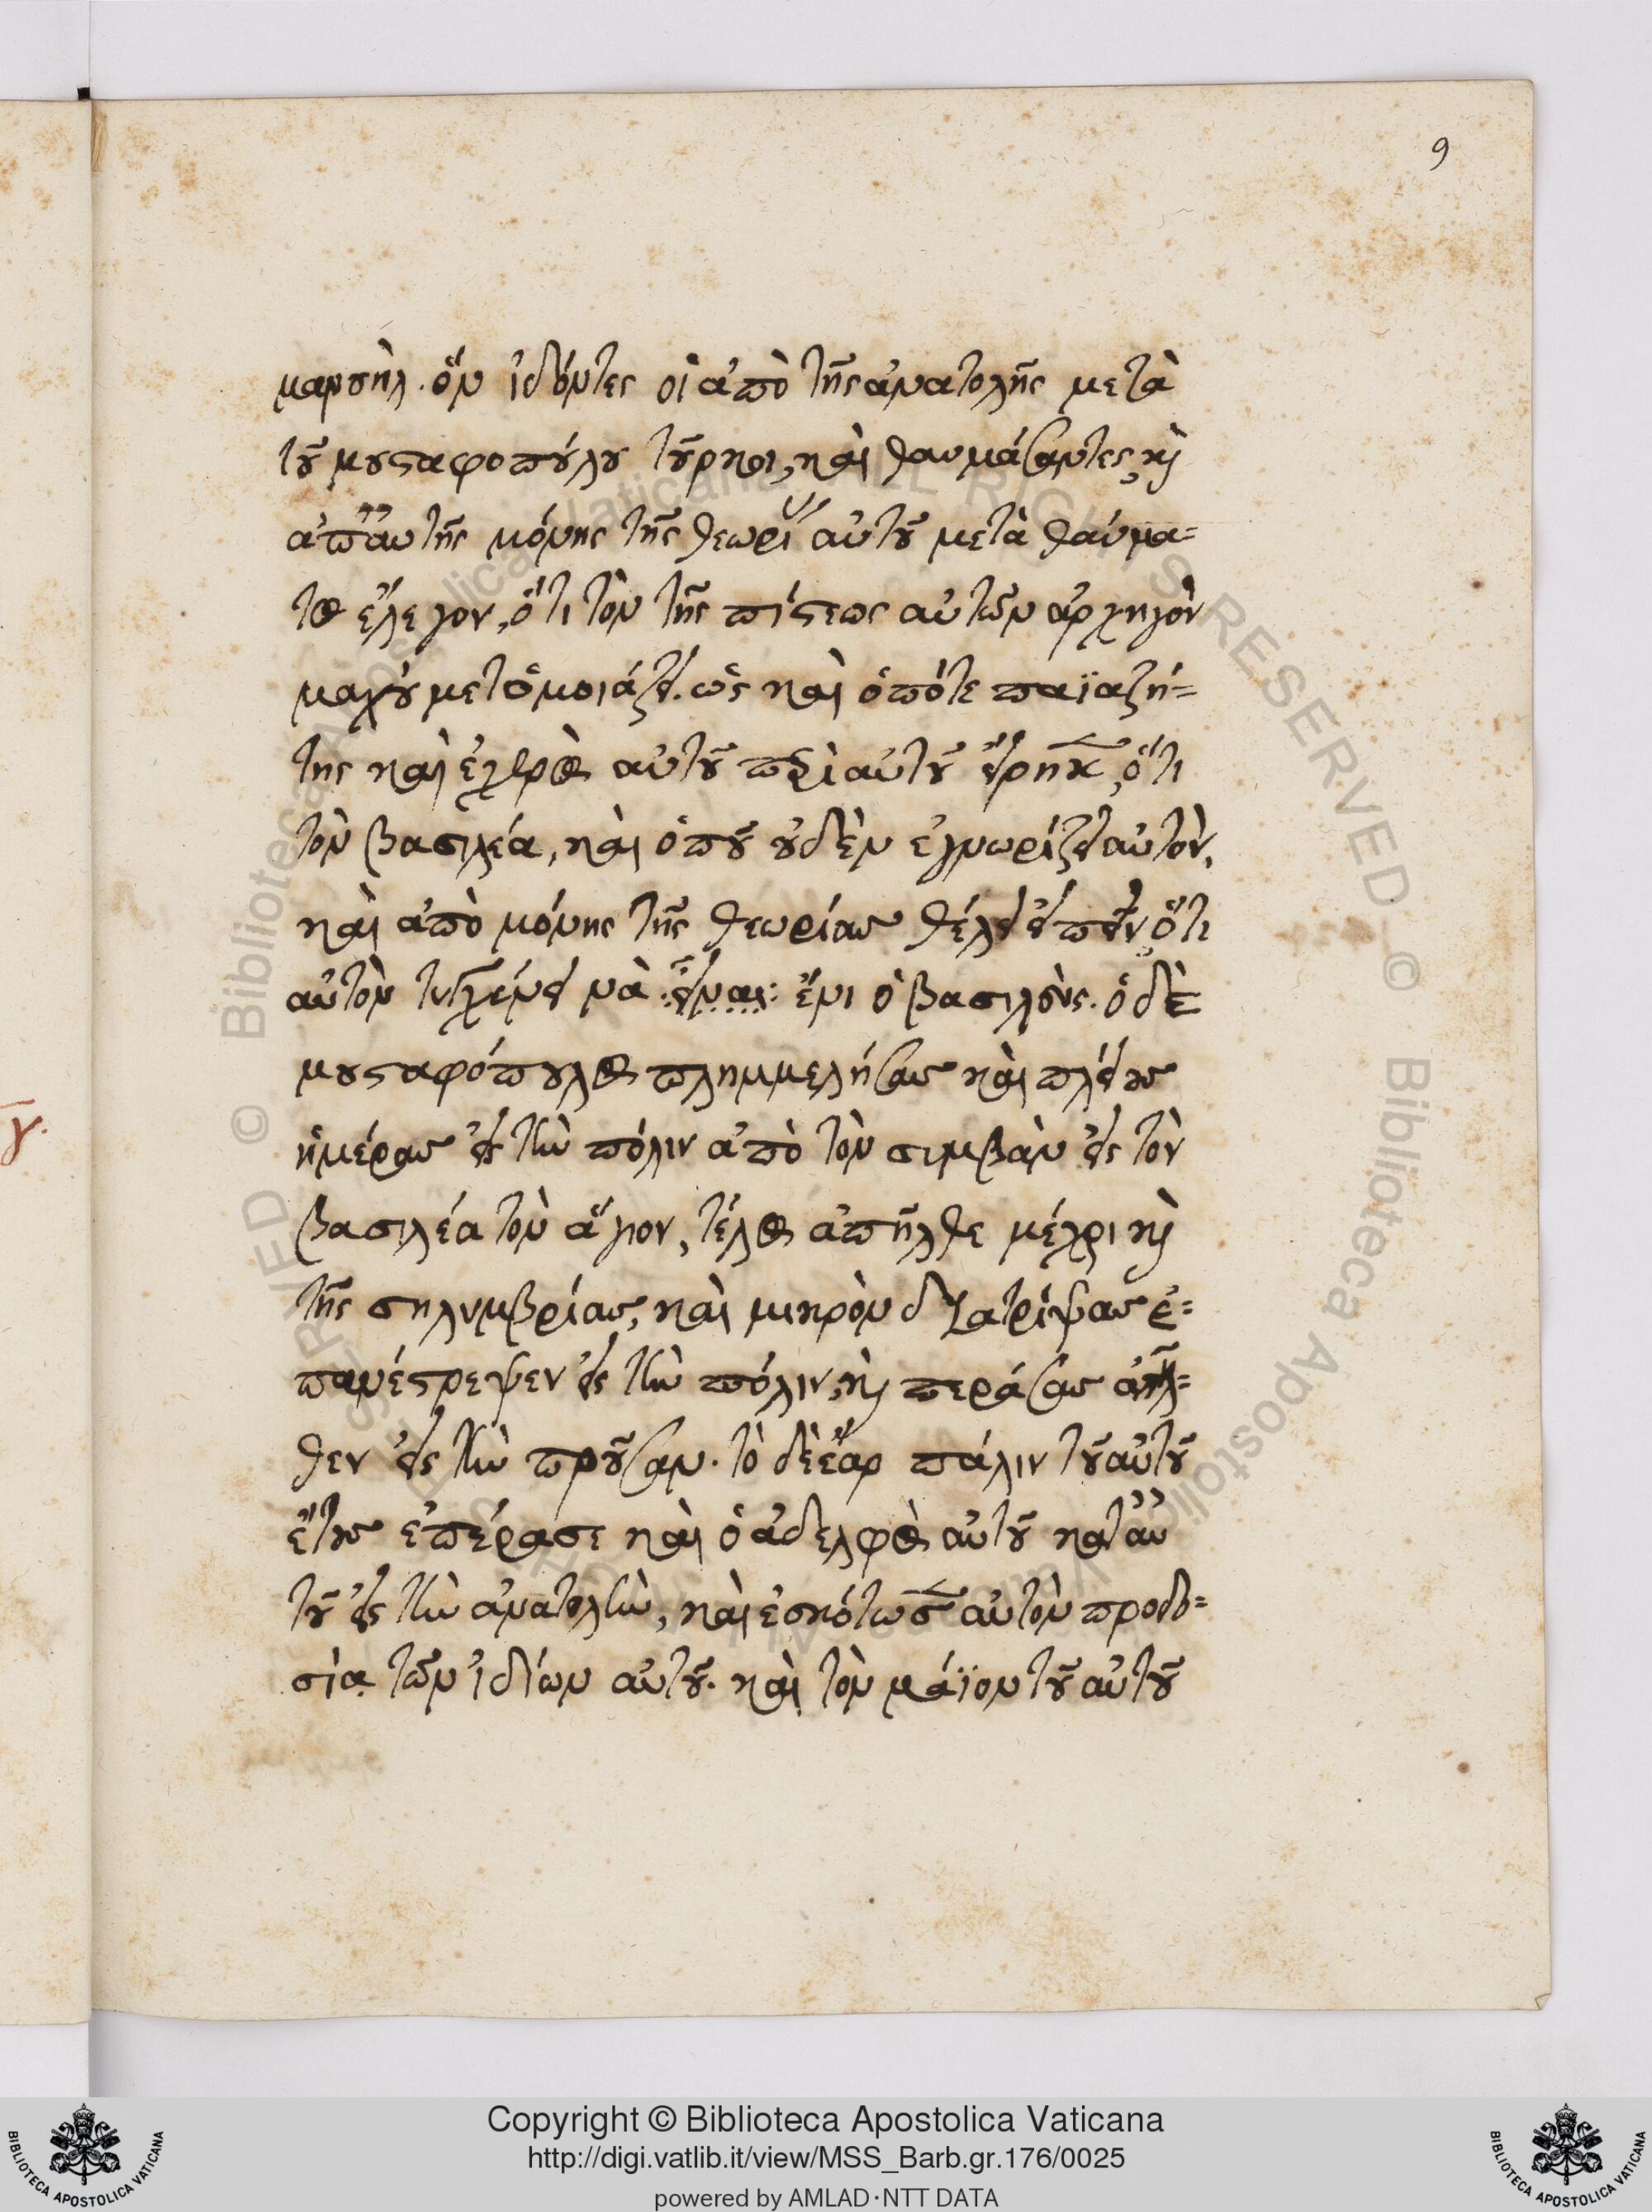 9
μανουὴλ. ὃν ἰδόντες οἱ ἀπὸ τῆς ἀνατολῆς μετὰ
τοῦ μουσταφοπούλου τοῦρκοι, καὶ θαυμάσαντες, καὶ
τῆς μόνης τῆς αὐτοῦ μετὰ θαύμα-
τος ἔλεγον, ὅτι τὸν τῆς πίστεως αὐτῶν ἀρχηγὸν
μαχούμετ ὁμοιάζει. ὡς καὶ ὁπότε παϊαζή-
της καὶ ἐχθρὸς αὐτοῦ περὶ αὐτοῦ εἴρηκεν, ὅτι
τὸν βασιλέα, καὶ ὁποῦ οὐδὲν ἐγνωρίζει αὐτὸν,
καὶ ἀπὸ μόνης τῆς θεωρίας θέλει εἰπεῖν ὅτι
αὐτὸν τυχαίνει νὰ εἶναι ἔνι ὁ βασιλεύς. ὁ δὲ
μουσταφόπουλος πλημμελήσας καὶ πλείους
ἡμέρας εἰς τὴν πόλιν ἀπὸ τὸν συμβὰν εἰς τὸν
βασιλέα τὸν ἅγιον, τέλος ἀπῆλθε μέχρι καὶ
τῆς σηλυμβρίας, καὶ μικρὸν διατρίψας ἐ-
πανέστρεψεν εἰς τὴν πόλιν, καὶ περάσας ἀπῆλ-
θεν εἰς τὴν προῦσαν. τὸ δὲ ἔαρ πάλιν τοῦ αὐτοῦ
ἔτους ἐπέρασε καὶ ὁ ἀδελφὸς αὐτοῦ κατ' αὐ
τοῦ εἰς τὴν ἀνατολὴν, καὶ ἐσκότωσεν αὐτὸν προδο-
σία τῶν ἰδίων αὐτοῦ. καὶ τὸν μάϊον τοῦ αὐτοῦ
γ.
Copyright © Biblioteca Apostolica Vaticana
http://digi.vatlib.it/view/MSS_Barb.gr.176/0025
powered by AMLAD·NTT DATA
BIBLIOTECA APOSTOLICA VATICANA
BIBLIOTECA APOSTOLICA VATICANA